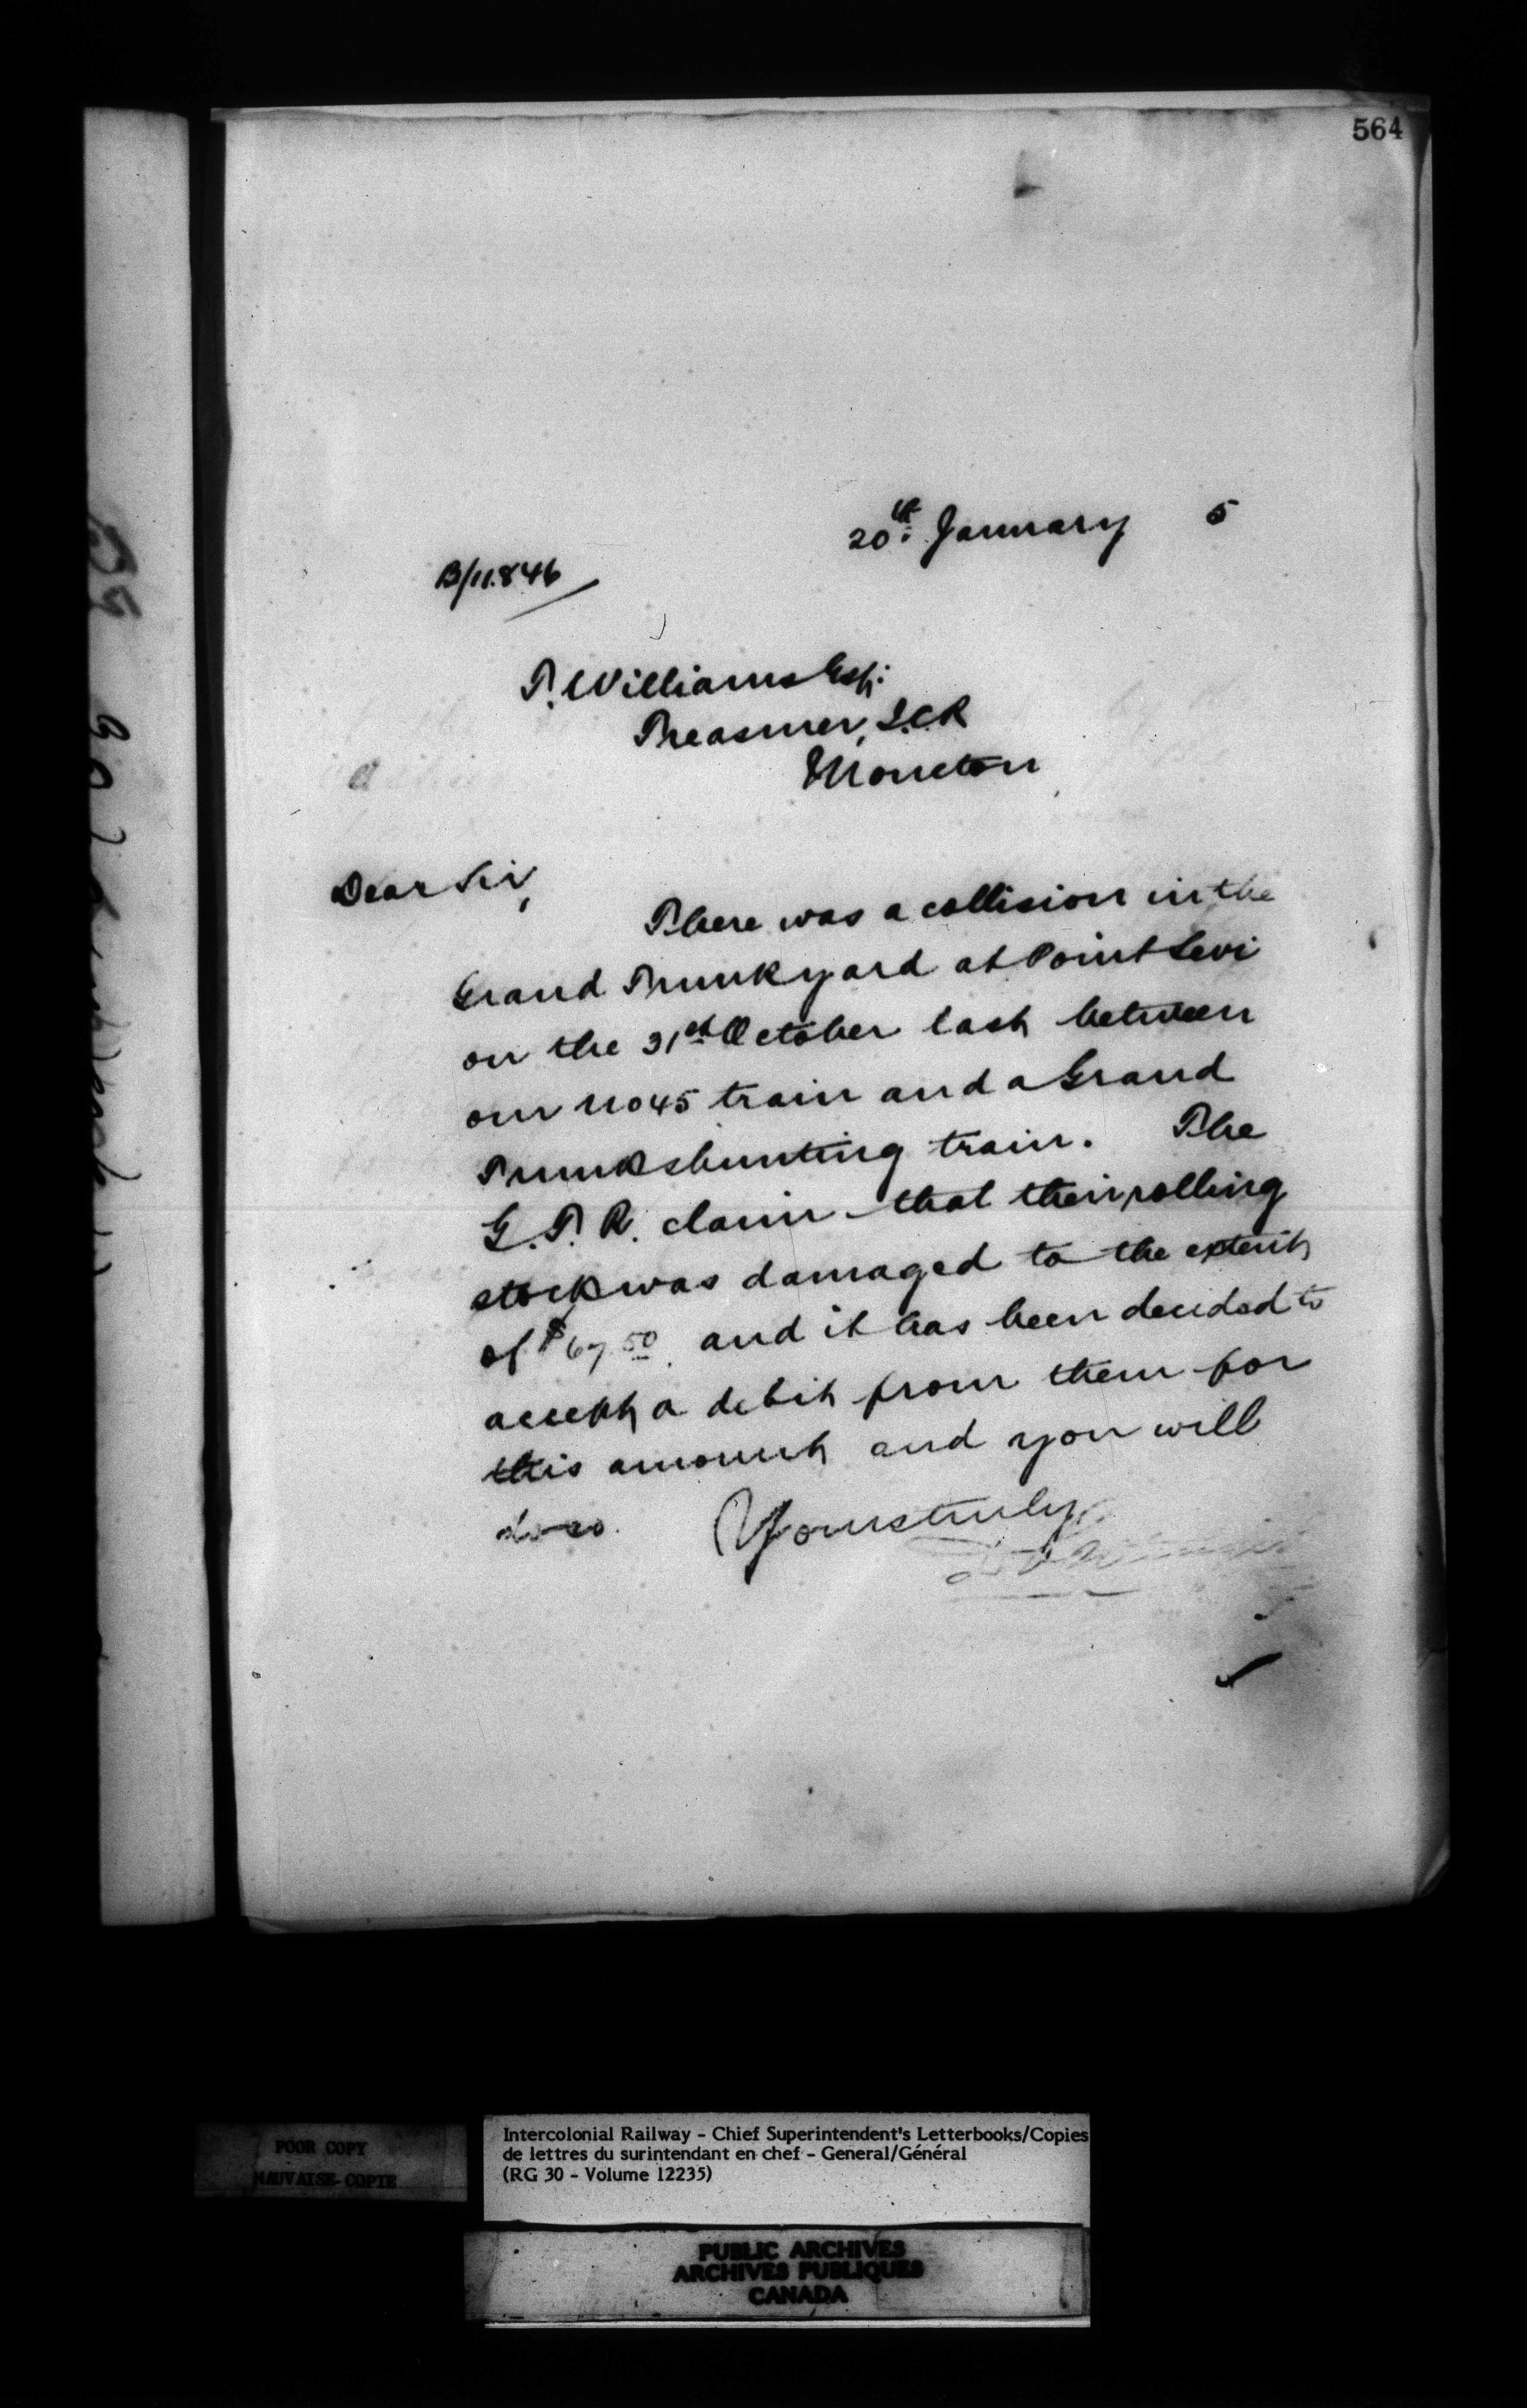 564
20th January 5
B/11.846
T. Williams Esq.
Treasurer, I.C.R
Moncton
Dear Sir,
There was a collision in the
Grand Trunk yard at Point Levi
on the 31st October last between
our No 45 train and a Grand
Trunk shunting train. The
G.T.R. claim that their rolling
stock was damaged to the extent
of $67.50 and it has been decided to
accept a debit from them for
this amount and you will
do so. Yours truly
POOR COPY
MAUVAISE COPIE
Intercolonial Railway - Chief Superintendent's Letterbooks/Copies
de lettres du surintendant en chef - General/Général
(RG 30 - Volume 12235)
PUBLIC ARCHIVES
ARCHIVES PUBLIQUES
CANADA